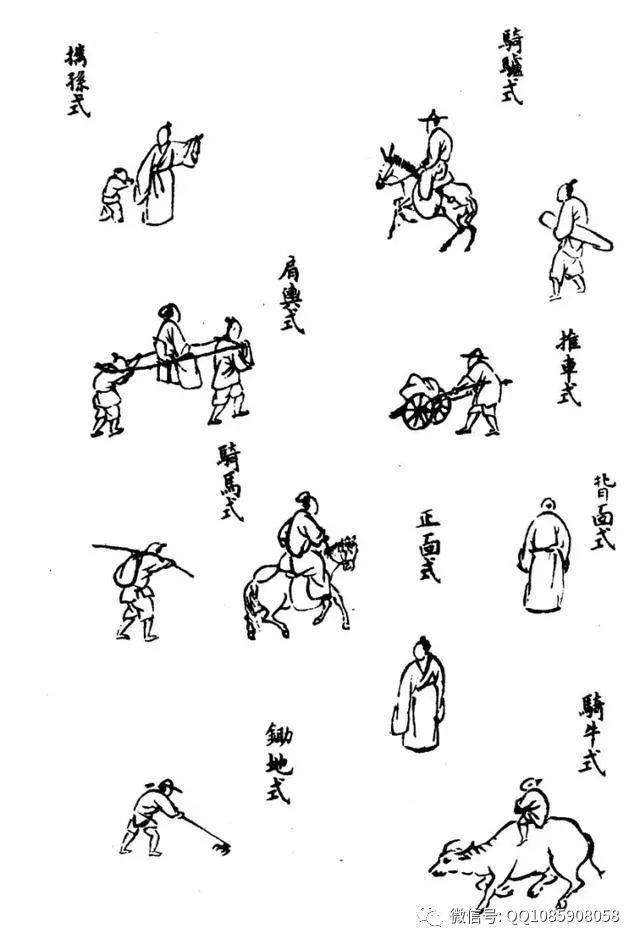 騎驢式
攜孫式
肩輿式
推車式
騎馬式
正面式
背面式
鋤地式
騎牛式
微信号: QQ1085908058